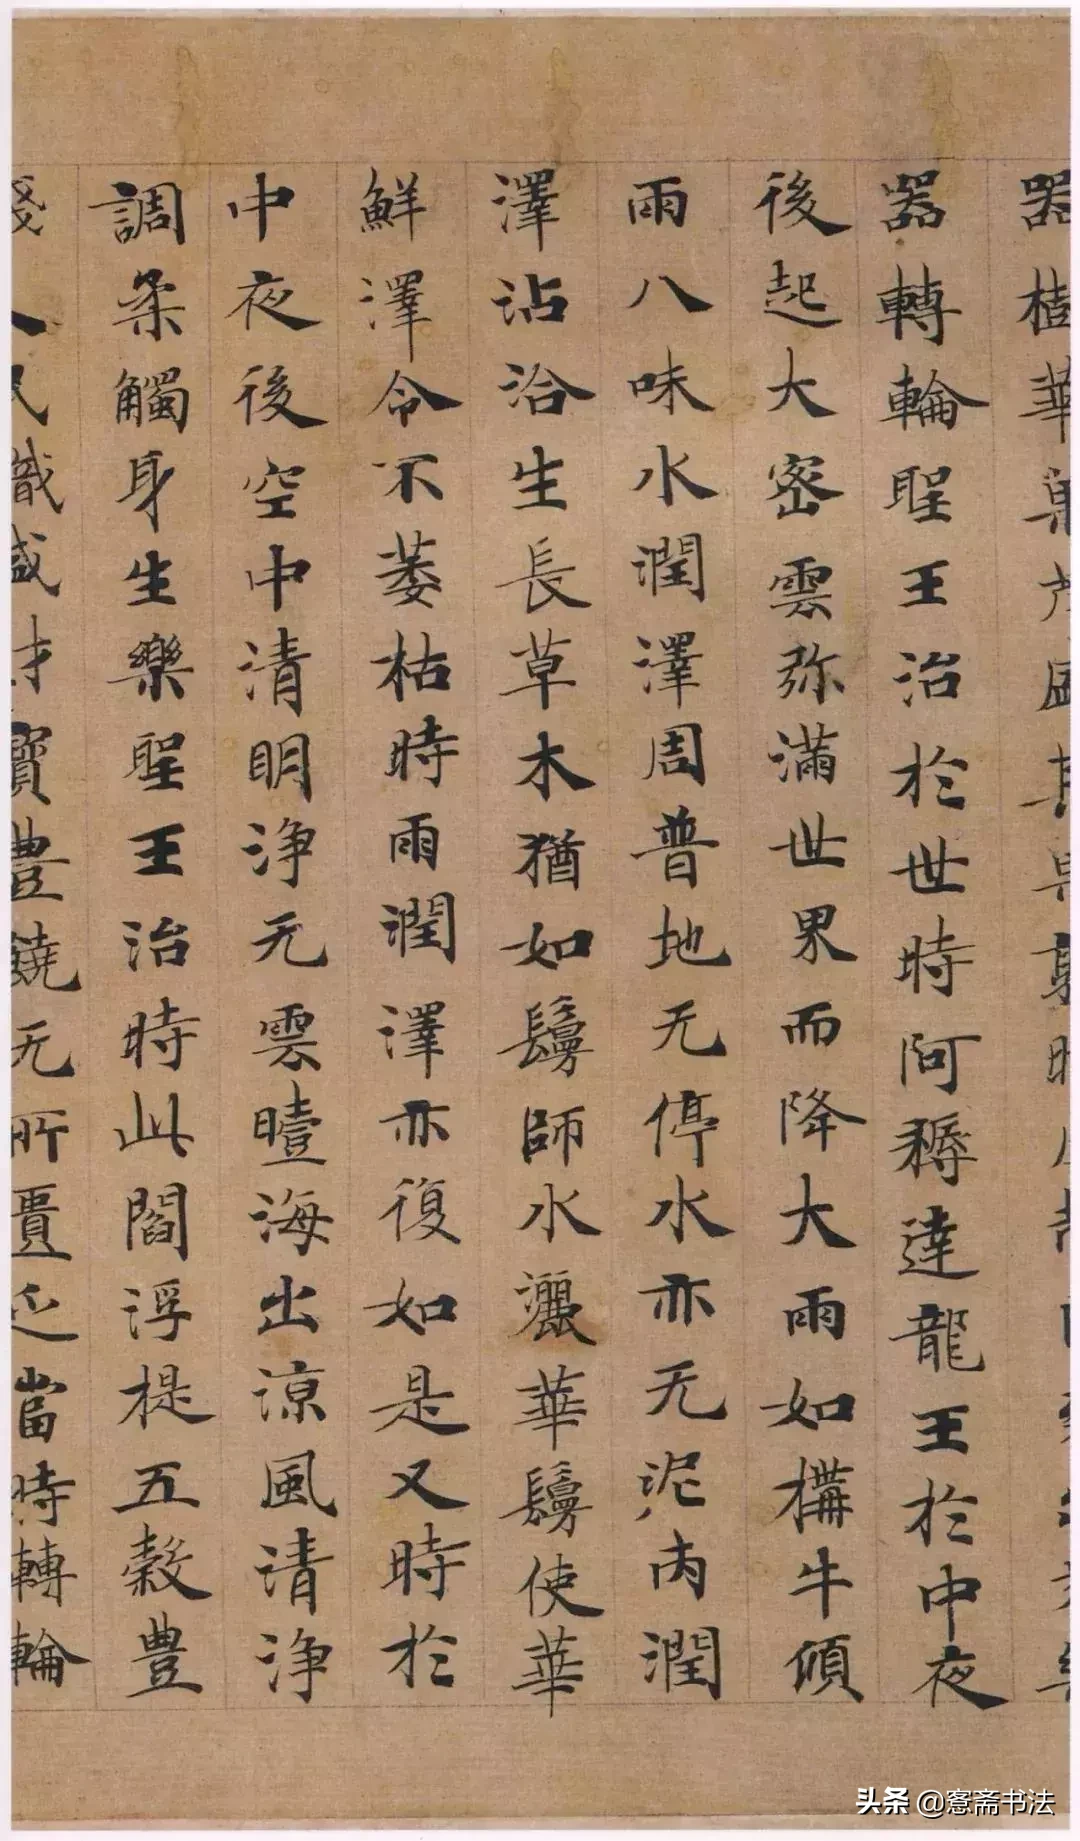 器
器轉輪聖王治於世時阿耨達龍王於中夜
後起大密雲弥滿世界而降大雨如構牛頃
雨八味水潤澤周普地无停水亦无泥內潤
澤沾洽生長草木猶如鬘師水灑華鬘使華
鮮澤令不萎枯時雨潤澤亦復如是又時於
中夜後空中清明浄无雲曀海出涼風清浄
調柔觸身生樂聖王治時此閻浮提五穀豊
人民熾盛財寶豊饒无所匱乏當時轉輪
头条 @窓斋书法